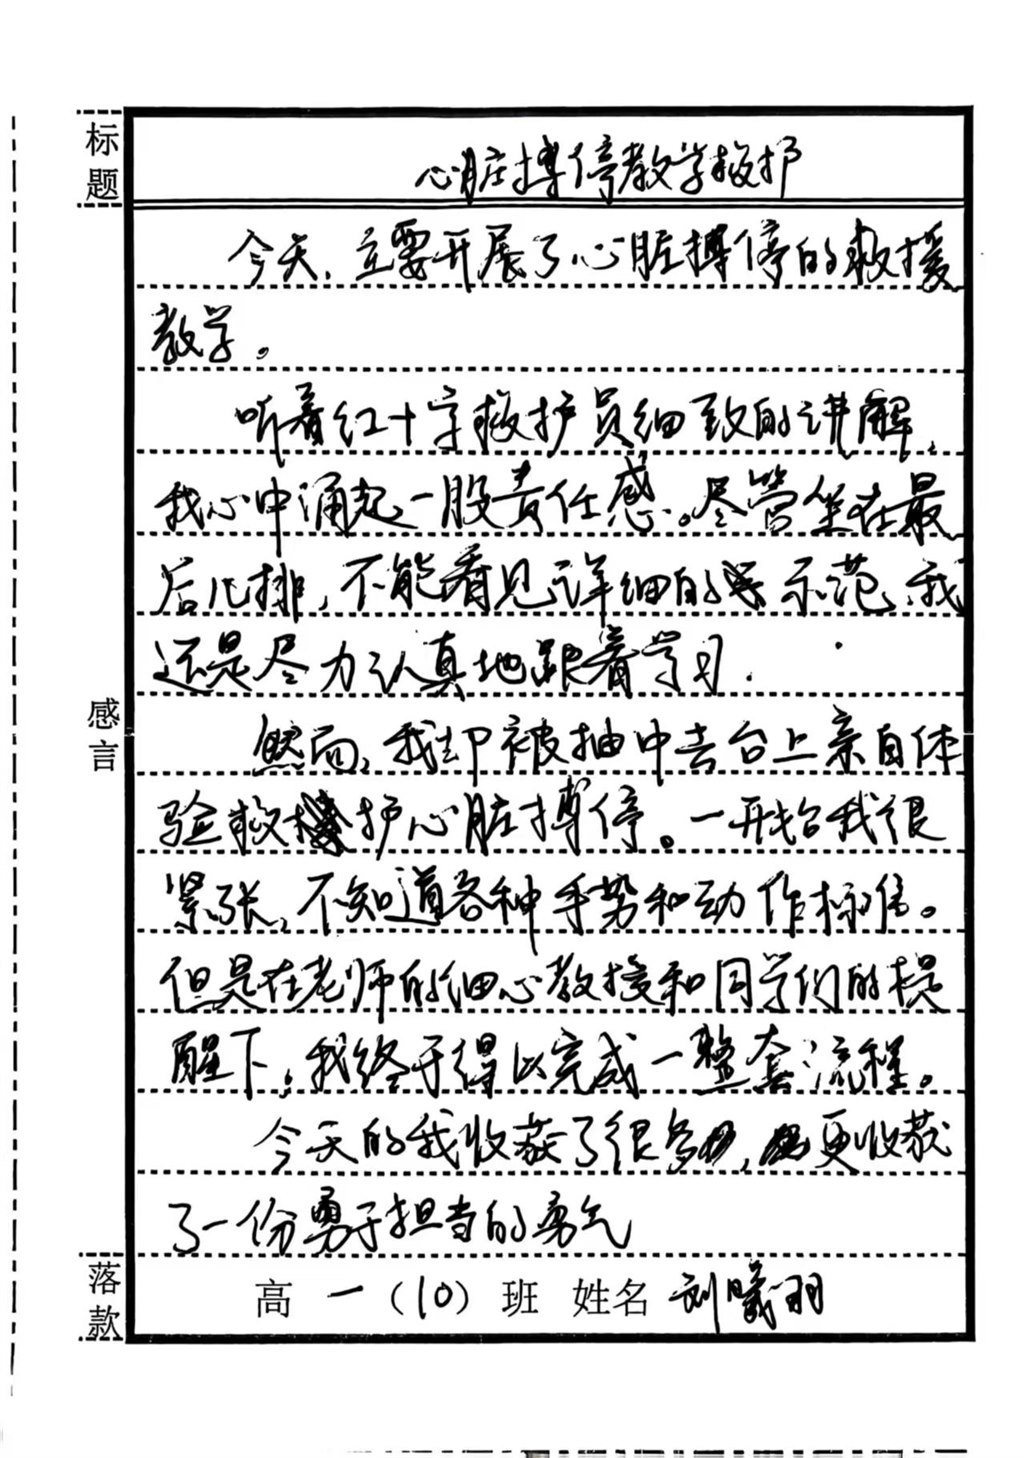 标题
心脏搏停教学救护
今天，立要开展了心脏搏停的救援
教学。
听着红十字救护员细致的讲解，
我心中涌起一股责任感。尽管坐在最
后几排，不能看见详细的示范，我
还是尽力认真地跟着学习.
感言
然而，我却被抽中去台上亲自体
验救护心脏搏停。一开始我很
紧张，不知道各种手势和动作标准。
但是在老师的细心教授和同学们的提
醒下，我终于得以完成一整套流程。
今天的我收获了很多，更收获
了一份勇于担当的勇气
落款
高一（10）班 姓名 刘曦羽